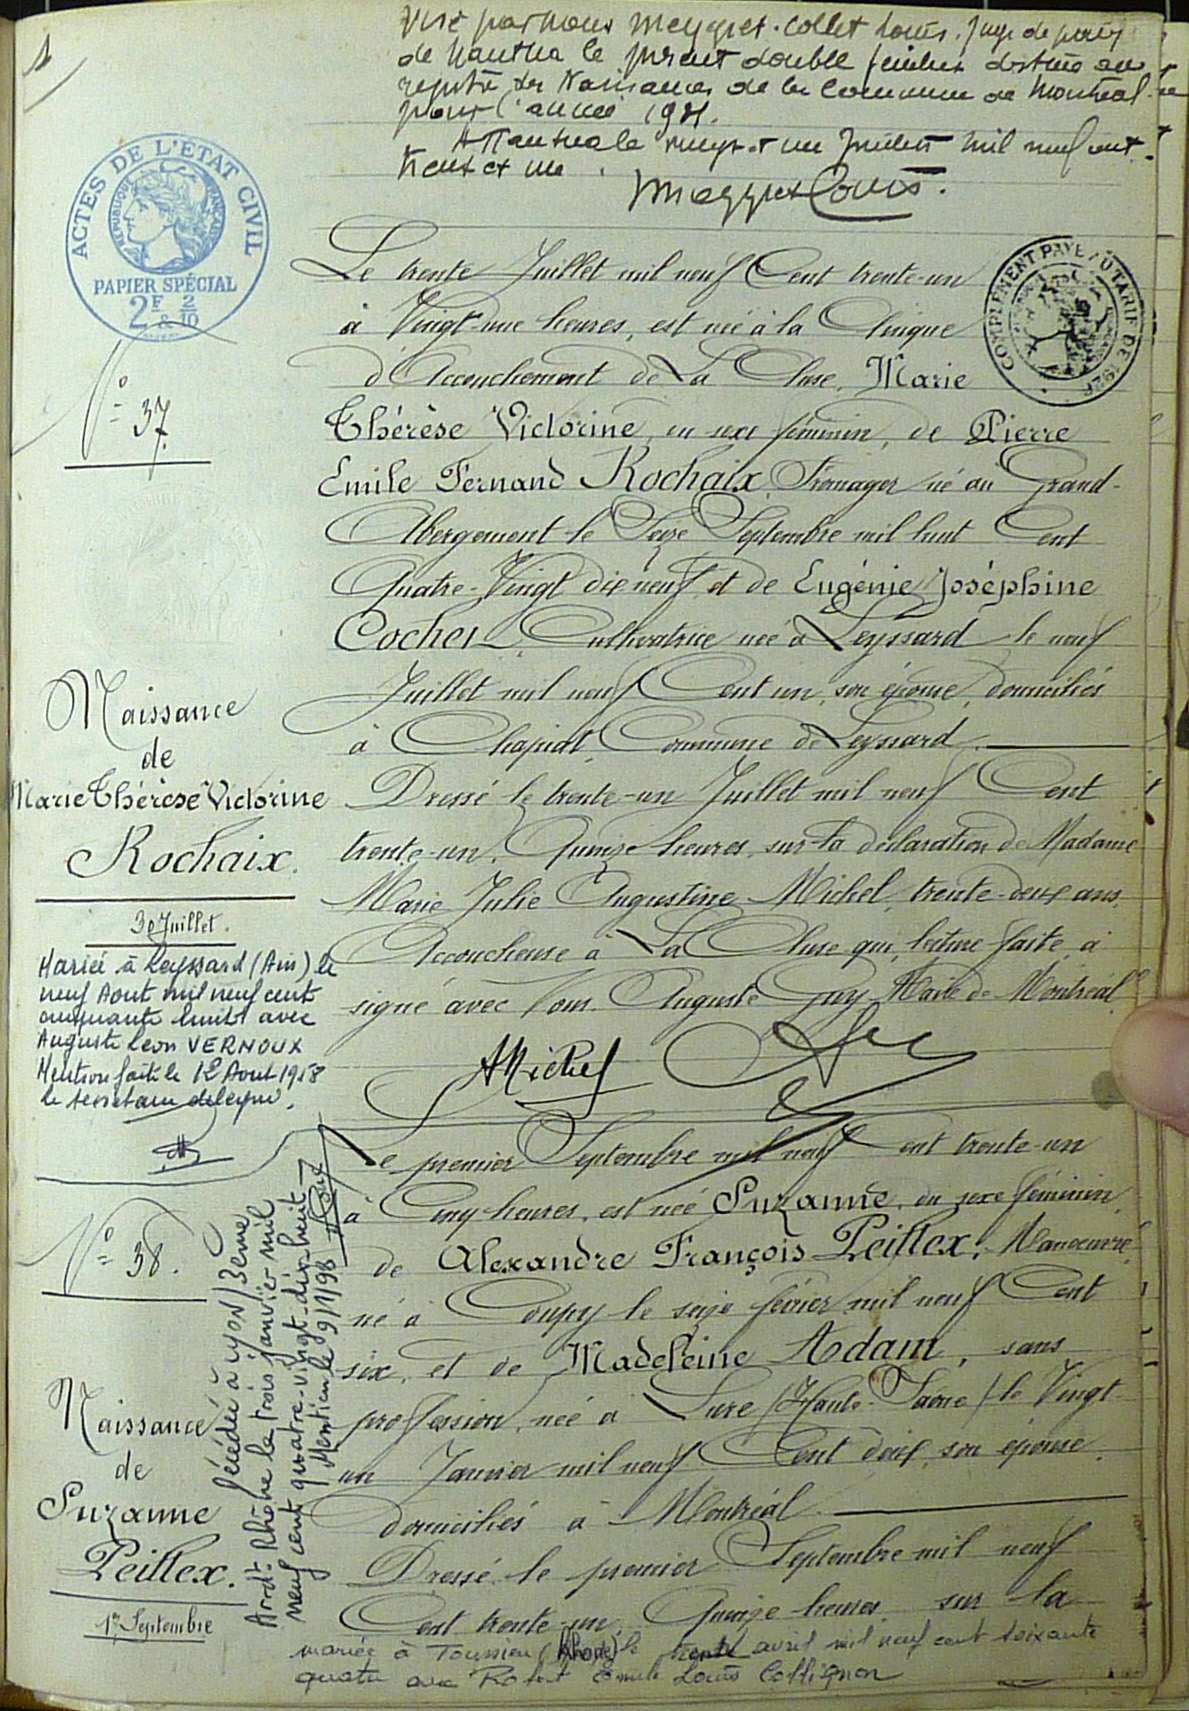 1
Visé par nous Meygret-Collet Louis, juge de paix
de Nantua le présent double feuillet destiné au
registre des Naissances de la Commune de Montréal
pour l'année 1931.
A Nantua le vingt et un Juillet mil neuf cent
trente et un.
ACTES DE L'ÉTAT CIVIL
RÉPUBLIQUE FRANÇAISE
PAPIER SPÉCIAL
2F & 2/10
COMPLÉMENT PAYÉ AU TARIF DE 1926
N° 37.
Naissance
de
Marie Thérèse Victorine
Rochaix.
30 Juillet.
Mariée à Leyssard (Ain) le
neuf Aout mil neuf cent
cinquante huit avec
Auguste Léon VERNOUX
Mention faite le 12 Aout 1958
le secrétaire délégué.
Le trente Juillet mil neuf Cent trente-un
à Vingt-une heures, est née à la Clinique
d'Accouchement de La Cluse, Marie
Thérèse Victorine, du sexe féminin, de Pierre
Emile Fernand Rochaix, Fromager né au Grand-
Abergement le Seize Septembre mil huit Cent
Quatre-Vingt dix neuf, et de Eugénie Joséphine
Cochet, Cultivatrice née à Leyssard le neuf
Juillet mil neuf Cent un, son épouse, domiciliés
à Chapiat, Commune de Leyssard.
Dressé le trente-un Juillet mil neuf Cent
trente-un, Quinze heures, sur la déclaration de Madame
Marie Julie Augustine Michel, trente-deux ans,
Accoucheuse à La Cluse qui, lecture faite, a
signé avec Nous Auguste Guy Maire de Montréal.
AMichel
N° 38.
Naissance
de
Suzanne
Peillex.
1er Septembre
Décédée à Lyon 3eme
Arrdt- Rhône le trois janvier mil
neuf cent quatre-vingt-dix-huit
Mention le 9/1/98
Le premier Septembre mil neuf Cent trente-un
à Cinq heures, est née Suzanne, du sexe féminin,
de Alexandre François Peillex, Manoeuvre
né à Coupy le seize février mil neuf Cent
six, et de Madeleine Adam, sans
profession, née à Lure (Haute-Saône) le Vingt
un Janvier mil neuf Cent dix, son épouse,
domiciliés à Montréal
Dressé le premier Septembre mil neuf
Cent trente-un, Quinze heures, sur la
mariée à Toussieu (Rhône) le trente avril mil neuf cent soixante
quatre avec Robert Emile Louis Collignon